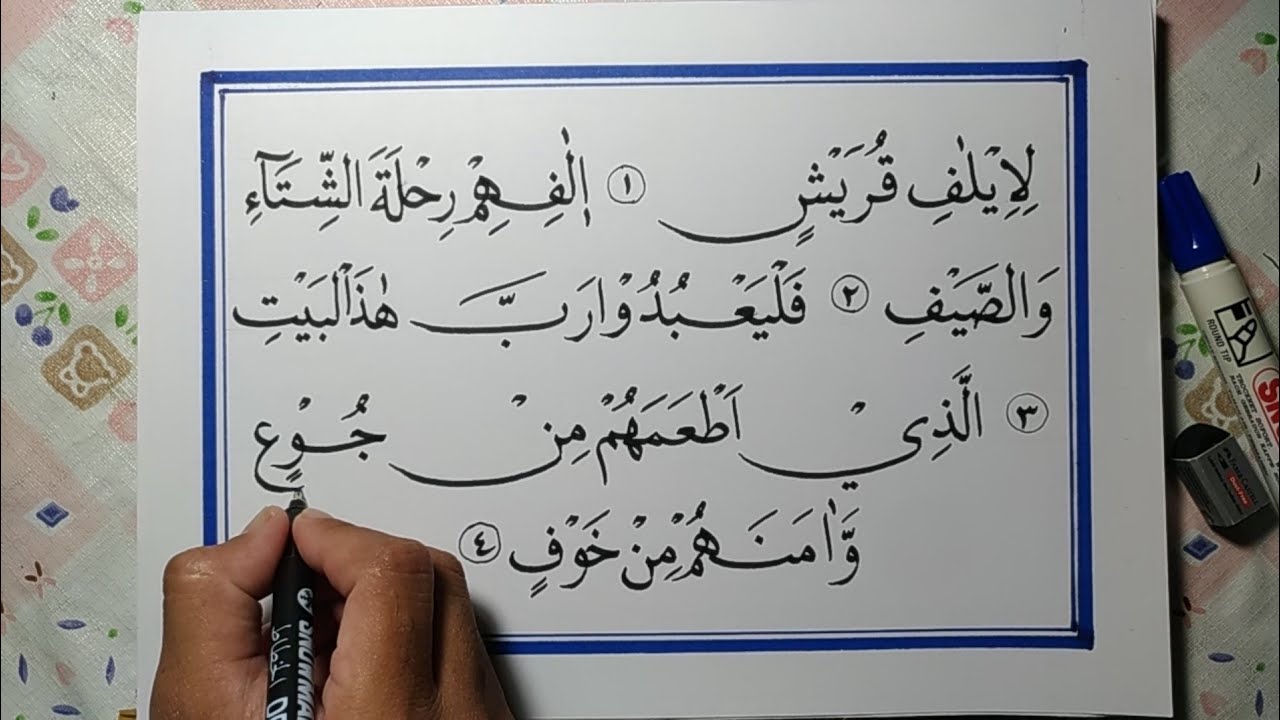 لِاِيْلٰفِ قُرَيْشٍ ١ اٖلٰفِهِمْ رِحْلَةَ الشِّتَآءِ
وَالصَّيْفِ ٢ فَلْيَعْبُدُوْا رَبَّ هٰذَا الْبَيْتِ
٣ الَّذِيْ اَطْعَمَهُمْ مِنْ جُوْعٍ
وَّاٰمَنَهُمْ مِنْ خَوْفٍ ٤
ROUND TIP
SNOWMAN